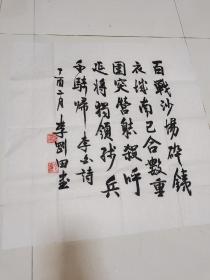 百戰沙場碎鐵
衣城南已合數重
圍突營射殺呼
延將獨領残兵
千騎歸 李白詩
丁酉二月 李剛田書